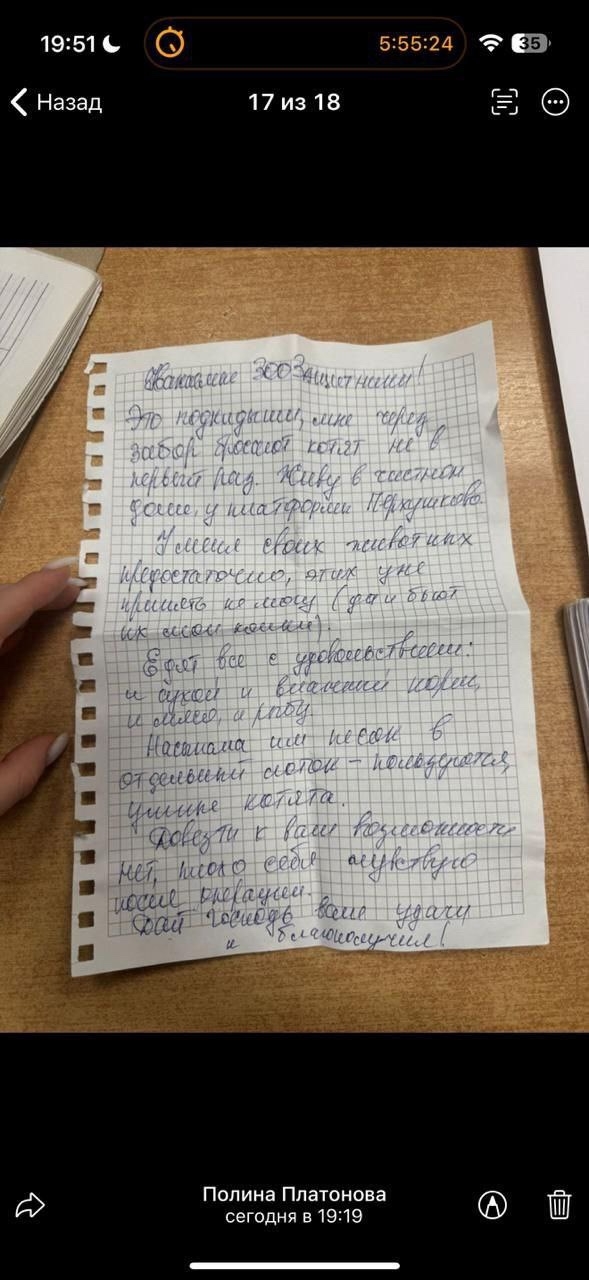 19:51
5:55:24
35
Назад
17 из 18
Уважаемые ЗООЗащитники!
Это подкидыши, мне через
забор бросают котят не в
первый раз. Живу в частном
доме, у платформы Перхушково.
У меня своих животных
предостаточно, этих уже
принять не могу (да и бьют
их мои кошки).
Едят все с удовольствием:
и сухой и влажный корм,
и мясо, и рыбу.
Насыпала им песок в
отдельный лоток - пользуются,
умные котята.
Довезти к вам возможности
нет, плохо себя чувствую
после операции.
Дай Господь вам удачи
и благополучия!
Полина Платонова
сегодня в 19:19